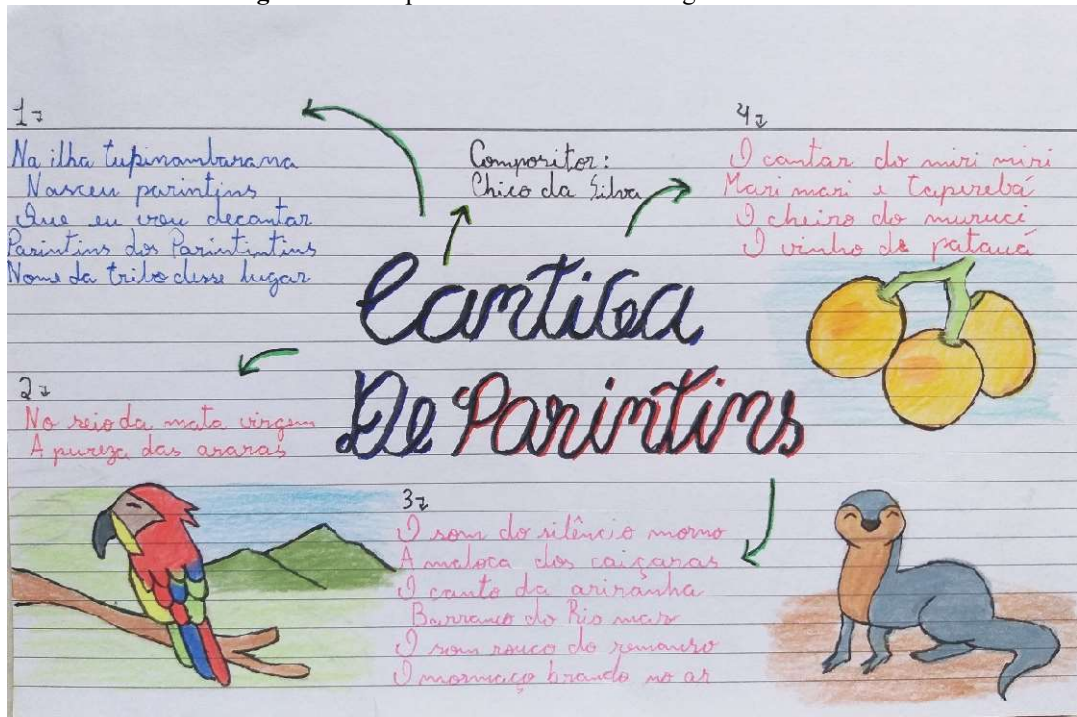 1
Na ilha tupinambarana
Nasceu parintins
Que eu vou decantar
Parintins dos Parintintins
Nome da tribo desse lugar
Compositor:
Chico da Silva
4
O cantar do miri miri
Mari mari e Tapirebá
O cheiro do muruci
O vinho de patauá
Cantiga
De Parintins
2
No seio da mata virgem
A pureza das araras
3
O som do silêncio morno
A maloca dos caiçaras
O canto da ariranha
Barranco do Rio mar
O som rouco do remanso
O mormaço brando no ar